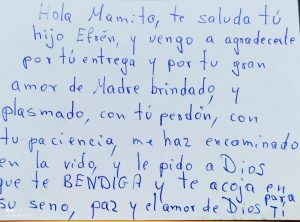 Hola Mamita, te saluda tú
hijo Efrén, y vengo a agradecerte
por tú entrega y por tu gran
amor de Madre brindado, y
plasmado, con tú perdón, con
tu paciencia, me haz encaminado
en la vida, y le pido a Dios
que te BENDIGA y te acoja en
su seno, paz y el amor de Dios para TI